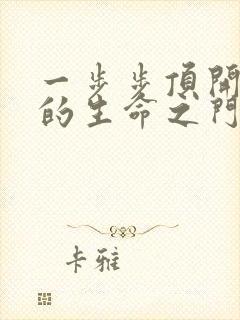 一步步頂開
的生命之門
卡雅